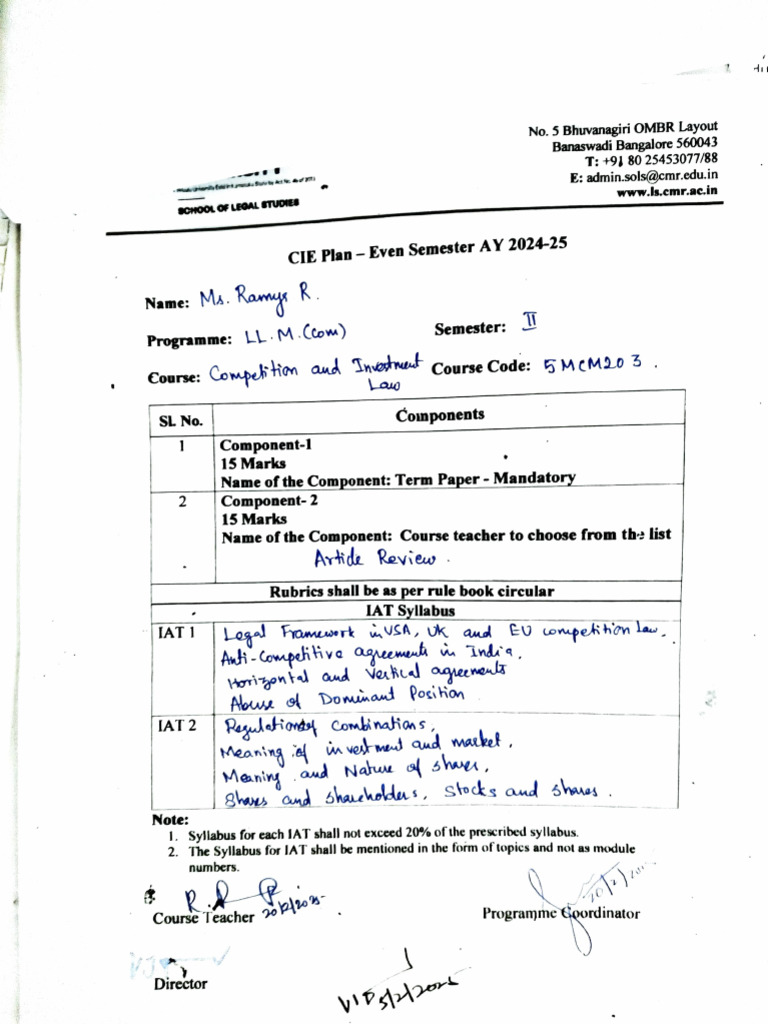 No. 5 Bhuvanagiri OMBR Layout
Banaswadi Bangalore 560043
T: +91 80 25453077/88
E: admin.sols@cmr.edu.in
www.ls.cmr.ac.in
SCHOOL OF LEGAL STUDIES
CIE Plan – Even Semester AY 2024-25
Name: Ms. Ramya R.
Programme: LL.M.(Com) Semester: II
Course: Competition and Investment Law Course Code: 5MCM203.
SL No. Components
1 Component-1
15 Marks
Name of the Component: Term Paper - Mandatory
2 Component- 2
15 Marks
Name of the Component: Course teacher to choose from the list
Article Review.
Rubrics shall be as per rule book circular
IAT Syllabus
IAT 1 Legal Framework in USA, UK and EU competition Law,
Anti-Competitive agreements in India,
Horizontal and Vertical agreements
Abuse of Dominant Position
IAT 2 Regulation of Combinations,
Meaning of investment and market,
Meaning and Nature of shares,
Shares and shareholders, Stocks and shares.
Note:
1. Syllabus for each IAT shall not exceed 20% of the prescribed syllabus.
2. The Syllabus for IAT shall be mentioned in the form of topics and not as module
numbers.
Course Teacher
Programme Coordinator
Director